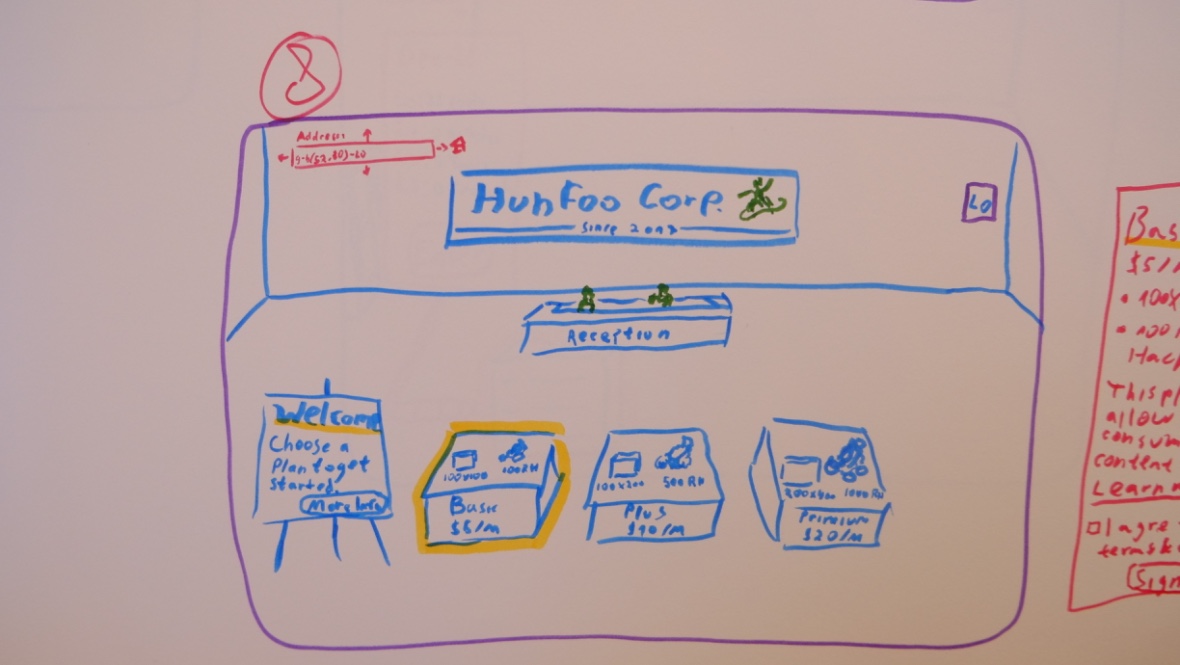 8
Address
HunFoo Corp.
LO
Reception
Welcome
Choose a
Plan to get
started.
More Info
100x100
100RH
Basic
$5/M
100x200
500 RH
Plus
$10/M
1000 RH
Premium
$20/M
Bas
$5/M
• 100x
• 100
Hac
This pl
allow
consum
content
Learn m
I agre
terms &
Sign